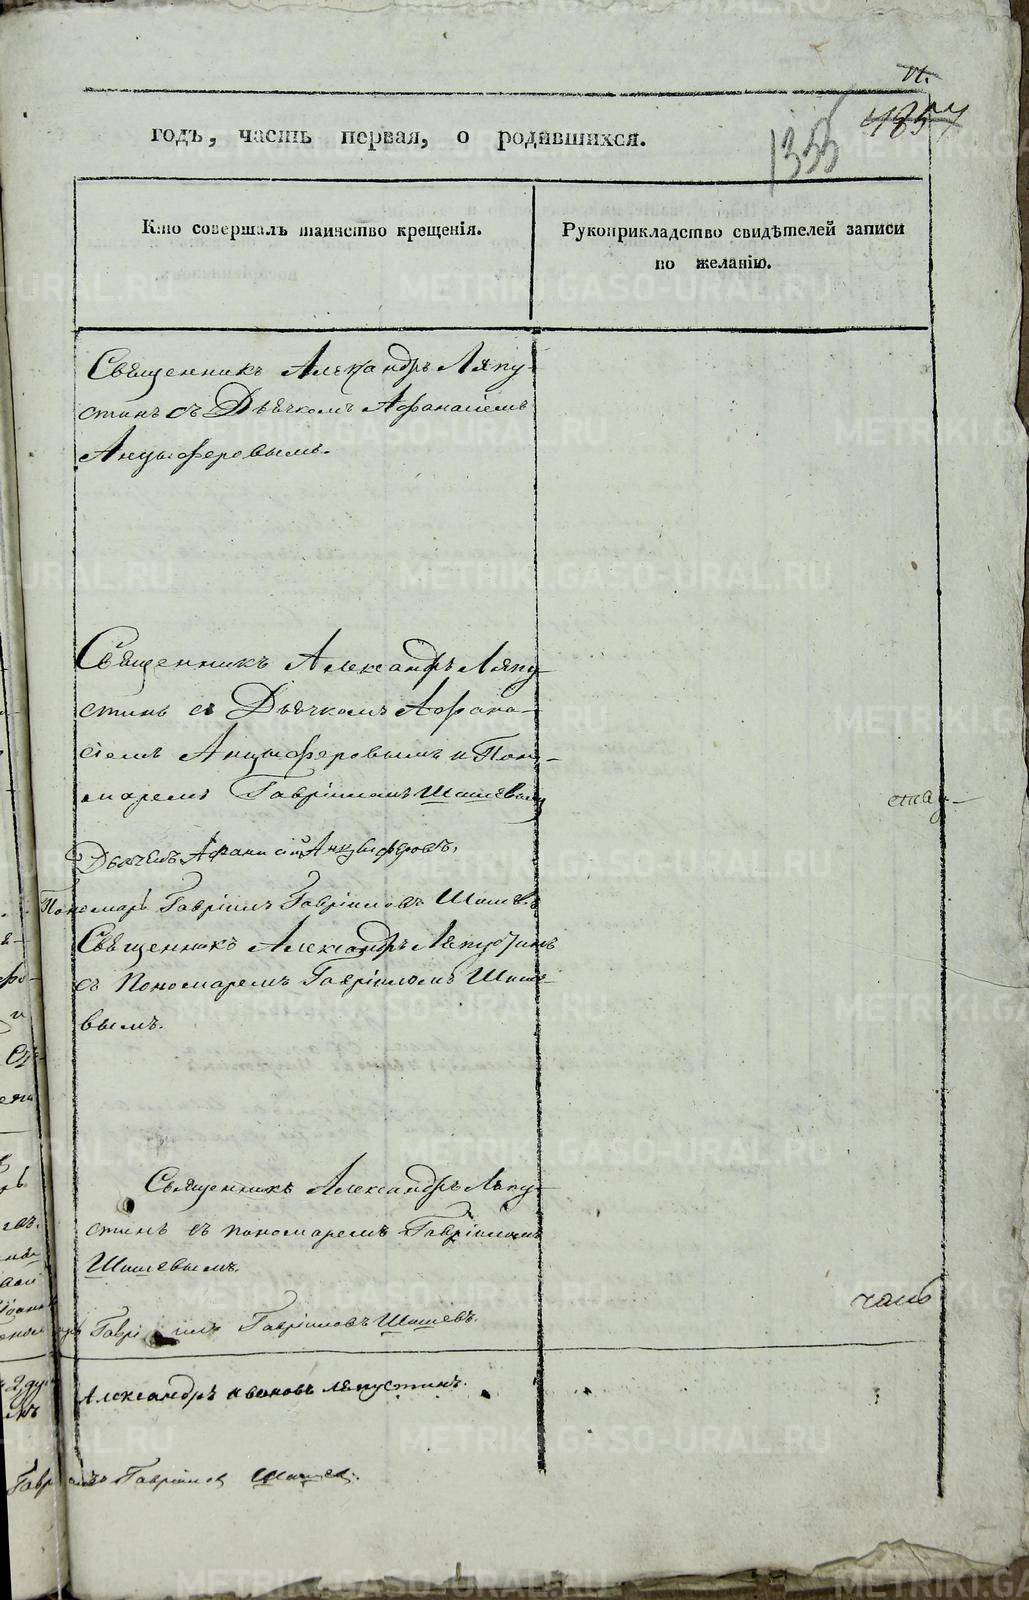 годъ, часть первая, о родившихся.
1355
4857
Кто совершалъ таинство крещенія.
Рукоприкладство свидѣтелей записи
по желанію.
Священникъ Александръ Ляпу-
стинъ съ Дьячкомъ Афанасіемъ
Анцыферовымъ.
Священникъ Александръ Ляпу-
стинъ съ Дьячкомъ Афана-
сіемъ Анцыферовымъ и Поно-
маремъ Гавріиломъ Шишевымъ
Дьячекъ Афанасій Анцыферовъ,
Пономарь Гавріилъ Гавріиловъ Шишевъ
Священникъ Александръ Ляпустинъ
съ Пономаремъ Гавріиломъ Шише-
вымъ.
Священникъ Александръ Ляпу-
стинъ съ пономаремъ Гавріиломъ
Шишевымъ.
Гавріилъ Гавріиловъ Шишевъ.
Александръ Ивановъ Ляпустинъ.
Гавріилъ Гавріиловъ Шишевъ.
METRIKI.GASO-URAL.RU